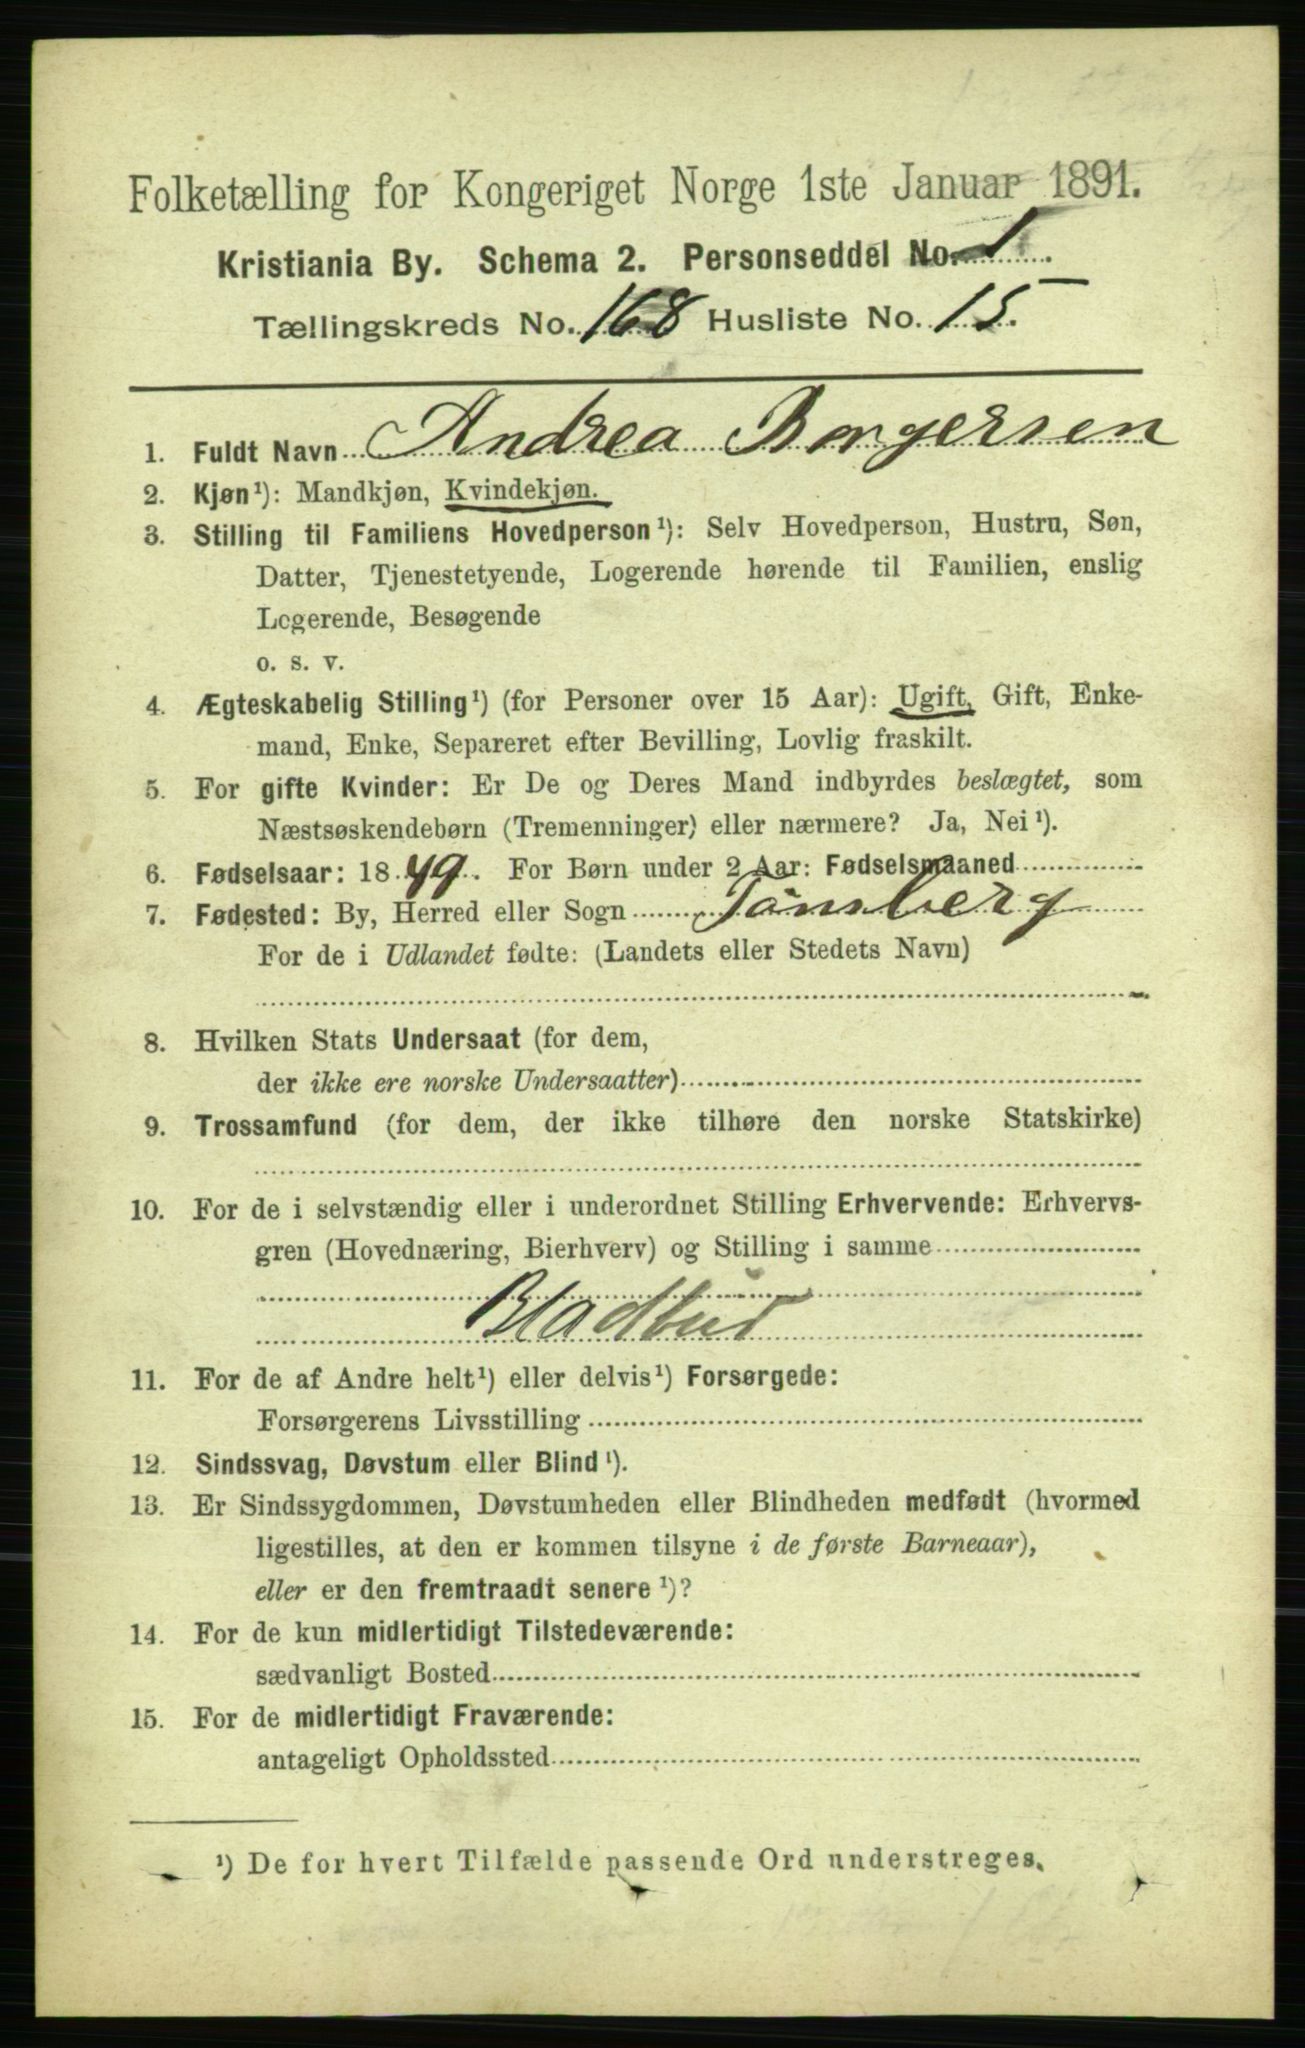 Folketælling for Kongeriget Norge 1ste Januar 1891.
Kristiania By. Schema 2. Personseddel No. 1.
Tællingskreds No. 168 Husliste No. 15.
1. Fuldt Navn Andrea Borgersen
2. Kjøn¹): Mandkjøn, Kvindekjøn.
3. Stilling til Familiens Hovedperson¹): Selv Hovedperson, Hustru, Søn,
Datter, Tjenestetyende, Logerende hørende til Familien, enslig
Logerende, Besøgende
o. s. v.
4. Ægteskabelig Stilling¹) (for Personer over 15 Aar): Ugift, Gift, Enke-
mand, Enke, Separeret efter Bevilling, Lovlig fraskilt.
5. For gifte Kvinder: Er De og Deres Mand indbyrdes beslægtet, som
Næstsøskendebørn (Tremenninger) eller nærmere? Ja, Nei¹).
6. Fødselsaar: 1849. For Børn under 2 Aar: Fødselsmaaned
7. Fødested: By, Herred eller Sogn Tönsberg
For de i Udlandet fødte: (Landets eller Stedets Navn)
8. Hvilken Stats Undersaat (for dem,
der ikke ere norske Undersaatter)
9. Trossamfund (for dem, der ikke tilhøre den norske Statskirke)
10. For de i selvstændig eller i underordnet Stilling Erhvervende: Erhvervs-
gren (Hovednæring, Bierhverv) og Stilling i samme
Bladbud
11. For de af Andre helt¹) eller delvis¹) Forsørgede:
Forsørgerens Livsstilling
12. Sindssvag, Døvstum eller Blind¹).
13. Er Sindssygdommen, Døvstumheden eller Blindheden medfødt (hvormed
ligestilles, at den er kommen tilsyne i de første Barneaar),
eller er den fremtraadt senere¹)?
14. For de kun midlertidigt Tilstedeværende:
sædvanligt Bosted
15. For de midlertidigt Fraværende:
antageligt Opholdssted
¹) De for hvert Tilfælde passende Ord understreges.